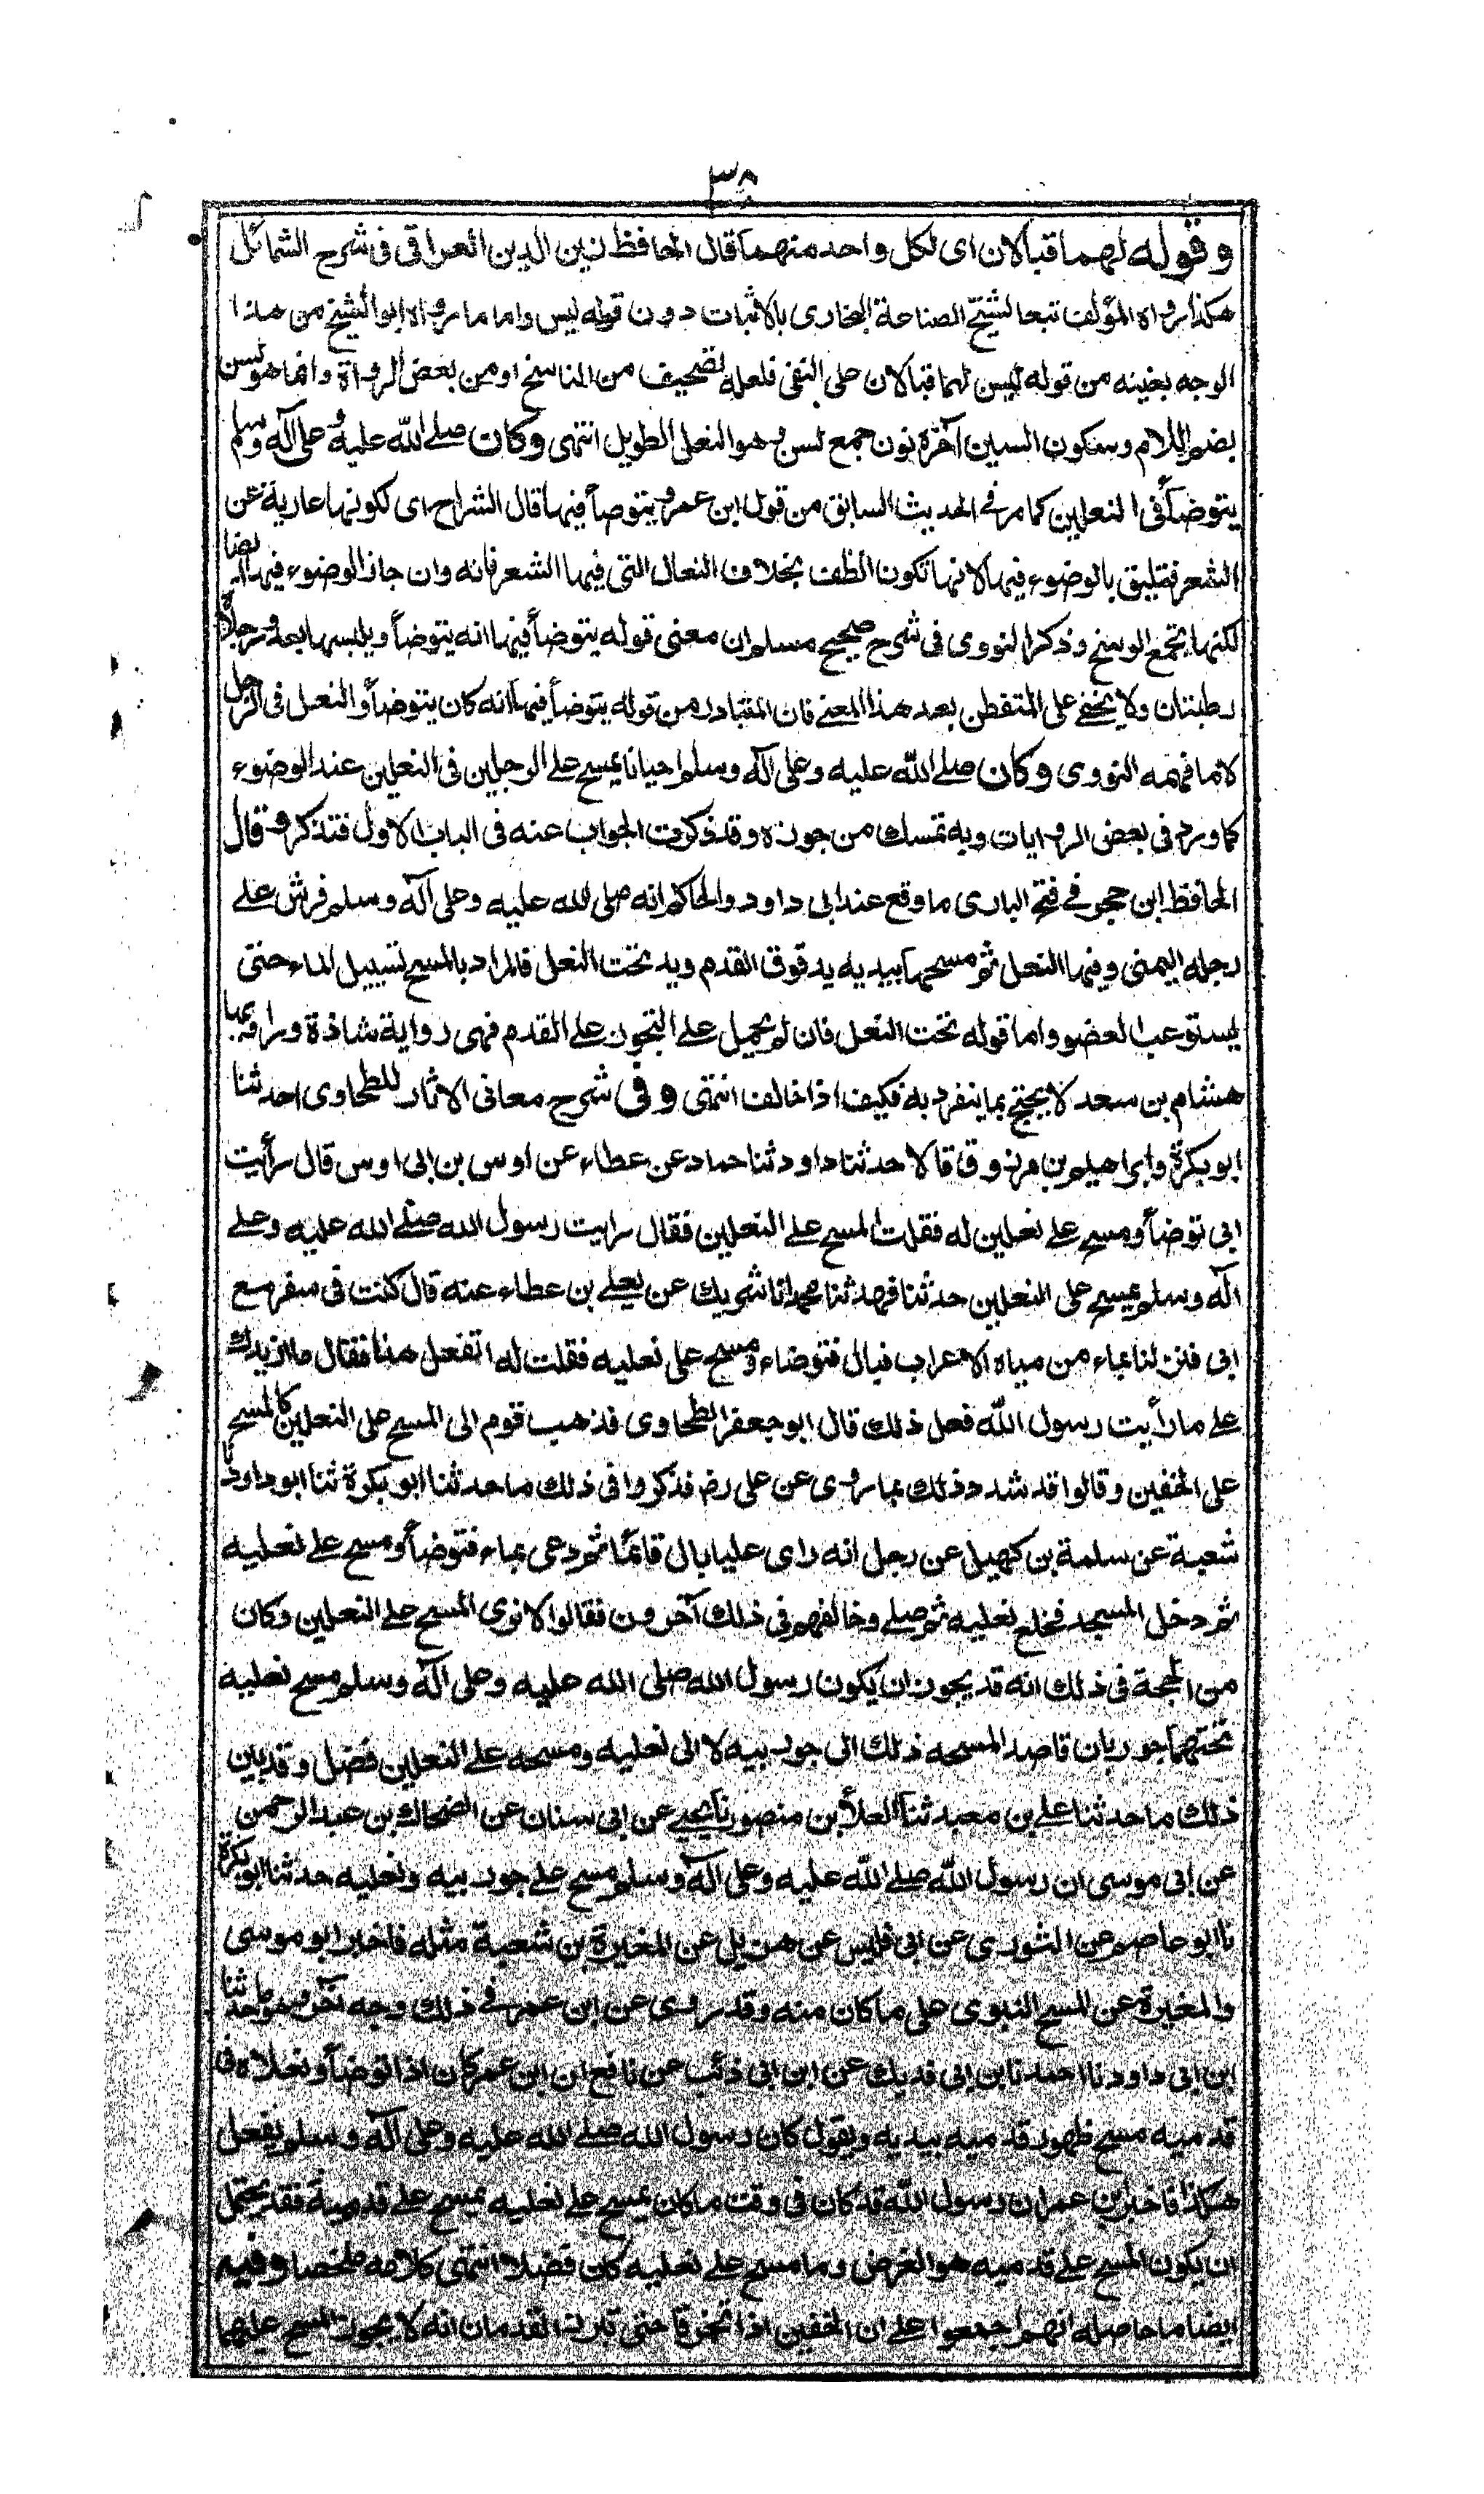 ٣٨
وقوله لهما قبالان اى لكل واحد منهما قال الحافظ زين الدين العراقى فى شرح الشمائل
هكذا رواه المؤلف تبعا لشيخ الصناعة البخارى بالاثبات دون قوله ليس واما ما رواه ابو الشيخ من هذا
الوجه بعينه من قوله ليس لهما قبالان على النفى فلعله تصحيف من الناسخ او من بعض الرواة وانما هو لسن
بضم اللام وسكون السين آخره نون جمع لسن وهو النعل الطويل انتهى وكان صلے الله عليه وعلى آله وسلم
يتوضأ فى النعلين كما مر فے الحديث السابق من قول ابن عمر ويتوضأ فيها قال الشراح اى لكونها عارية عن
الشعر فتليق بالوضوء فيها لانها تكون انظف بخلاف النعال التى فيها الشعر فانه وان جاز الوضوء فيها ايضا
لكنها يجمع الوسخ وذكر النووى فى شرح صحيح مسلم ان معنى قوله يتوضأ فيها انه يتوضأ ويلبسها بعد ورجلاه
رطبتان ولا يخفى على المتفطن بعد هذا المعنے فان المتبادر من قوله يتوضأ فيها انه كان يتوضأ والنعل فى الرجل
لا ما فهمه النووى وكان صلے الله عليه وعلى آله وسلم احيانا يمسح علے الرجلين فى النعلين عند الوضوء
كما ورد فى بعض الروايات وبه تمسك من جوزه وقد ذكرت الجواب عنه فى الباب الاول فتذكر وقال
الحافظ ابن حجر فے فتح البارى ما وقع عند ابى داود والحاكم انه صلى الله عليه وعلى آله وسلم فرش علے
رجله اليمنى وفيها النعل ثم مسحها بيديه يد فوق القدم ويد تحت النعل فالمراد بالمسح تسييل الماء حتى
يستوعب العضو واما قوله تحت النعل فان لم يحمل علے التجوز علے القدم فهى رواية شاذة وراويها
هشام بن سعد لا يحتج بما ينفرد به فكيف اذا خالف انتهى وفى شرح معانى الاثار للطحاوى احدثنا
ابو بكرة وابراهيم بن مرزوق قالا حدثنا داود ثنا حماد عن عطاء عن اوس بن ابى اوس قال رأيت
ابى توضأ ومسح علے نعلين له فقلت المسح علے النعلين فقال رايت رسول الله صلے الله عليه وعلے
آله وسلم يمسح على النعلين حدثنا فهد ثنا محمد انا شريك عن يعلے بن عطاء عنه قال كنت فى سفر مع
ابى فنزلنا بماء من مياه الاعراب فبال فتوضاء ومسح على نعليه فقلت له اتفعل هذا فقال ما ازيدك
علے ما رأيت رسول الله فعل ذلك قال ابو جعفر الطحاوى فذهب قوم الى المسح على النعلين كالمسح
على الخفين وقالوا قد شدد ذلك بما روى عن على رض فذكروا فى ذلك ما حدثنا ابو بكرة ثنا ابو داود نا
شعبة عن سلمة بن كهيل عن رجل انه راى عليا بال قائما ثم دعى بماء فتوضأ ومسح علے نعليه
ثم دخل المسجد فخلع نعليه ثم صلے وخالفهم فى ذلك آخرون فقالوا لا نرى المسح على النعلين وكان
من الحجة فى ذلك انه قد يجوز ان يكون رسول الله صلى الله عليه وعلى آله وسلم مسح نعليه
تحتهما جوربان قاصدا لمسحه ذلك الى جوربيه لا الى نعليه ومسحه علے النعلين فضل وقد بين
ذلك ما حدثنا علے بن معبد ثنا العلأ بن منصور نا يحيے عن ابى سنان عن الضحاك بن عبد الرحمن
عن ابى موسى ان رسول الله صلے الله عليه وعلى آله وسلم مسح علے جوربيه ونعليه حدثنا ابو بكرة
نا ابو عاصم عن الثورى عن ابى قيس عن هزيل عن المغيرة بن شعبة مثله فاخبر ابو موسى
والمغيرة عن المسح النبوى على ما كان منه وقد روى عن ابن عمر فے ذلك وجه آخر وهو ما حدثنا
ابن ابى داود نا احمد نا ابن ابى فديك عن ابن ابى ذئب عن نافع ان ابن عمر كان اذا توضأ ونعلاه فى
قدميه مسح ظهور قدميه بيديه ويقول كان رسول الله صلے الله عليه وعلى آله وسلم يفعل
هكذا فاخبر ابن عمر ان رسول الله قد كان فى وقت ما كان يمسح على نعليه يمسح علے قدميه فقد يحتمل
ان يكون المسح علے قدميه هو الفرض وما مسح علے نعليه كان فضلا انتهى كلامه ملخصا وفيه
ايضا ما حاصله انهم اجمعوا علے ان الخفين اذا تخرقا حتى تبرز القدمان انه لا يجوز المسح عليهما